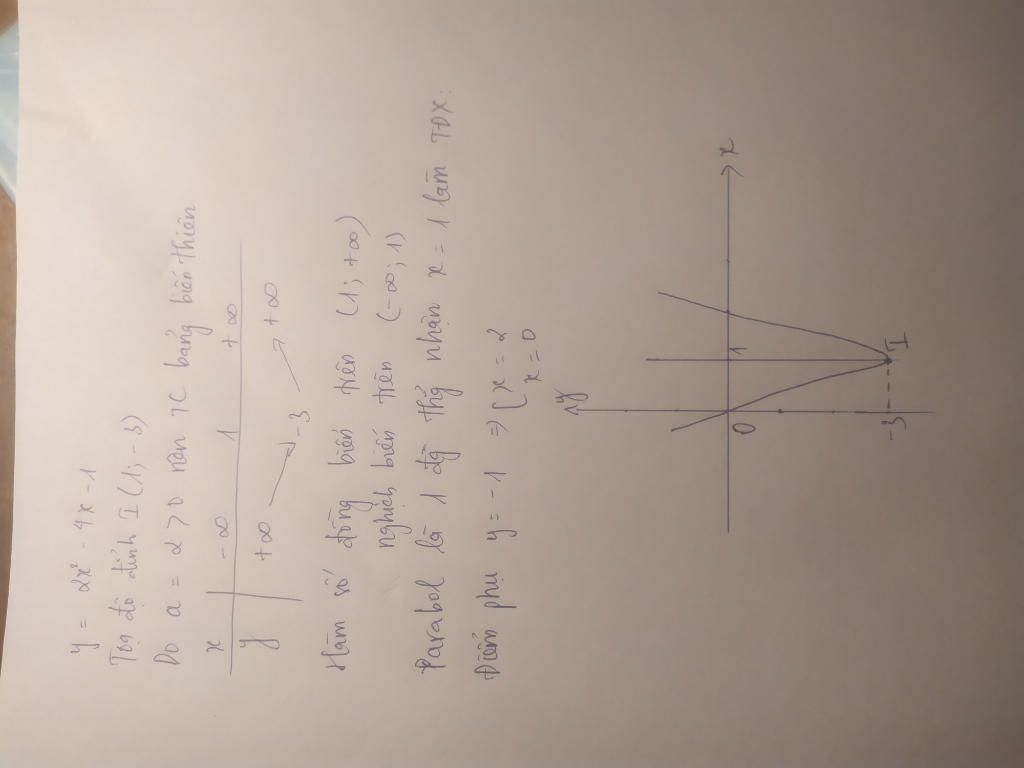 y = 2x² - 4x - 1
Tọa độ đỉnh I (1; -3)
Do a = 2 > 0 nên TC bảng biến thiên
x -∞ 1 +∞
y +∞ -3 +∞
Hàm số đồng biến trên (1; +∞)
nghịch biến trên (-∞; 1)
Parabol là 1 đg thg nhận x = 1 làm TĐX:
Điểm phụ y = -1 => [ x = 2
x = 0
y
O 1 x
-3 I